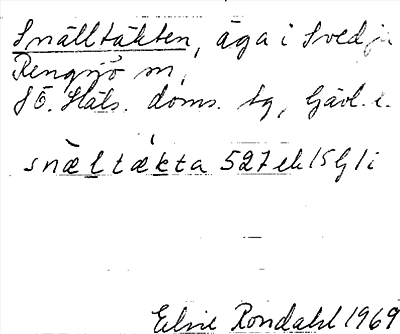 Snälltäkten, äga i Svedja
Rengsjö sn,
SÖ. Häls. doms. tg, Gävl. l.
snæltækta 527 ek 15 G 1 i
Elsie Rondahl 1969